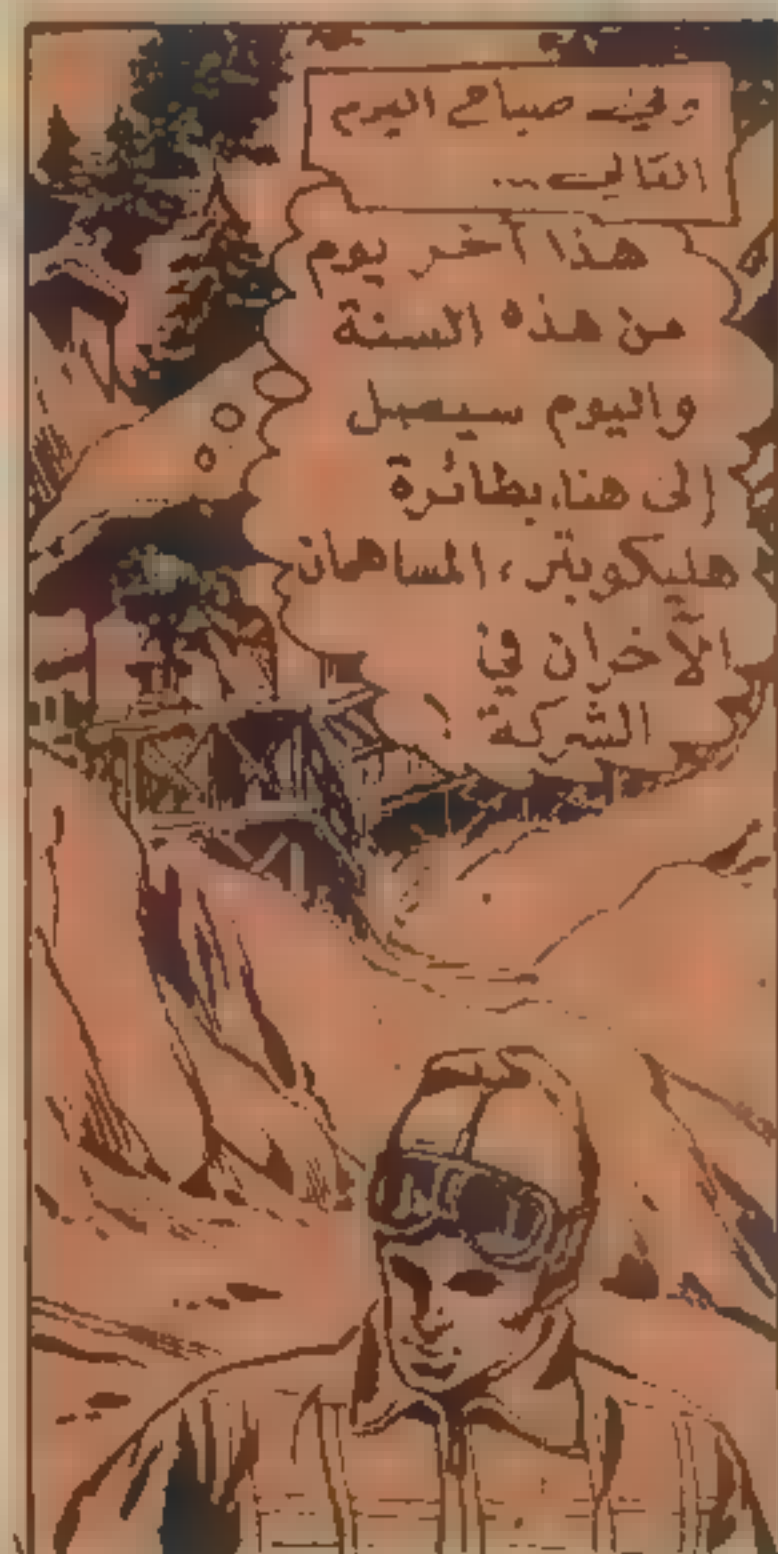 وفي صباح اليوم
التالي ...
هذا آخر يوم
من هذه السنة
واليوم سيصل
إلى هنا، بطائرة
هليكوبتر، المساهمان
الآخران في
الشركة !